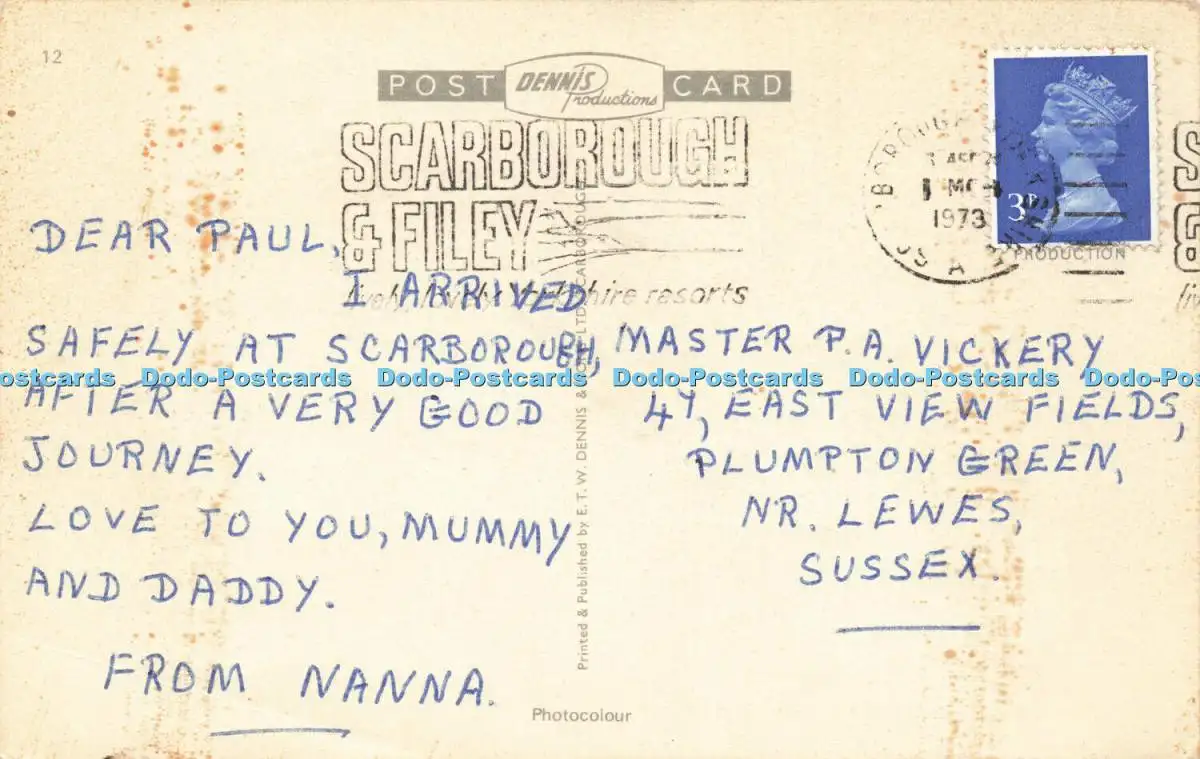 12
POST Dennis Productions CARD
SCARBOROUGH
& FILEY
resorts
1973
3P
PRODUCTION
DEAR PAUL,
I ARRIVED
SAFELY AT SCARBOROUGH,
AFTER A VERY GOOD
JOURNEY.
LOVE TO YOU, MUMMY
AND DADDY.
FROM NANNA.
Printed & Published by E.T.W. DENNIS & LTD SCARBOROUGH
MASTER P.A. VICKERY
47, EAST VIEW FIELDS,
PLUMPTON GREEN,
NR. LEWES,
SUSSEX.
Photocolour
Dodo-Postcards Dodo-Postcards Dodo-Postcards Dodo-Postcards Dodo-Postcards